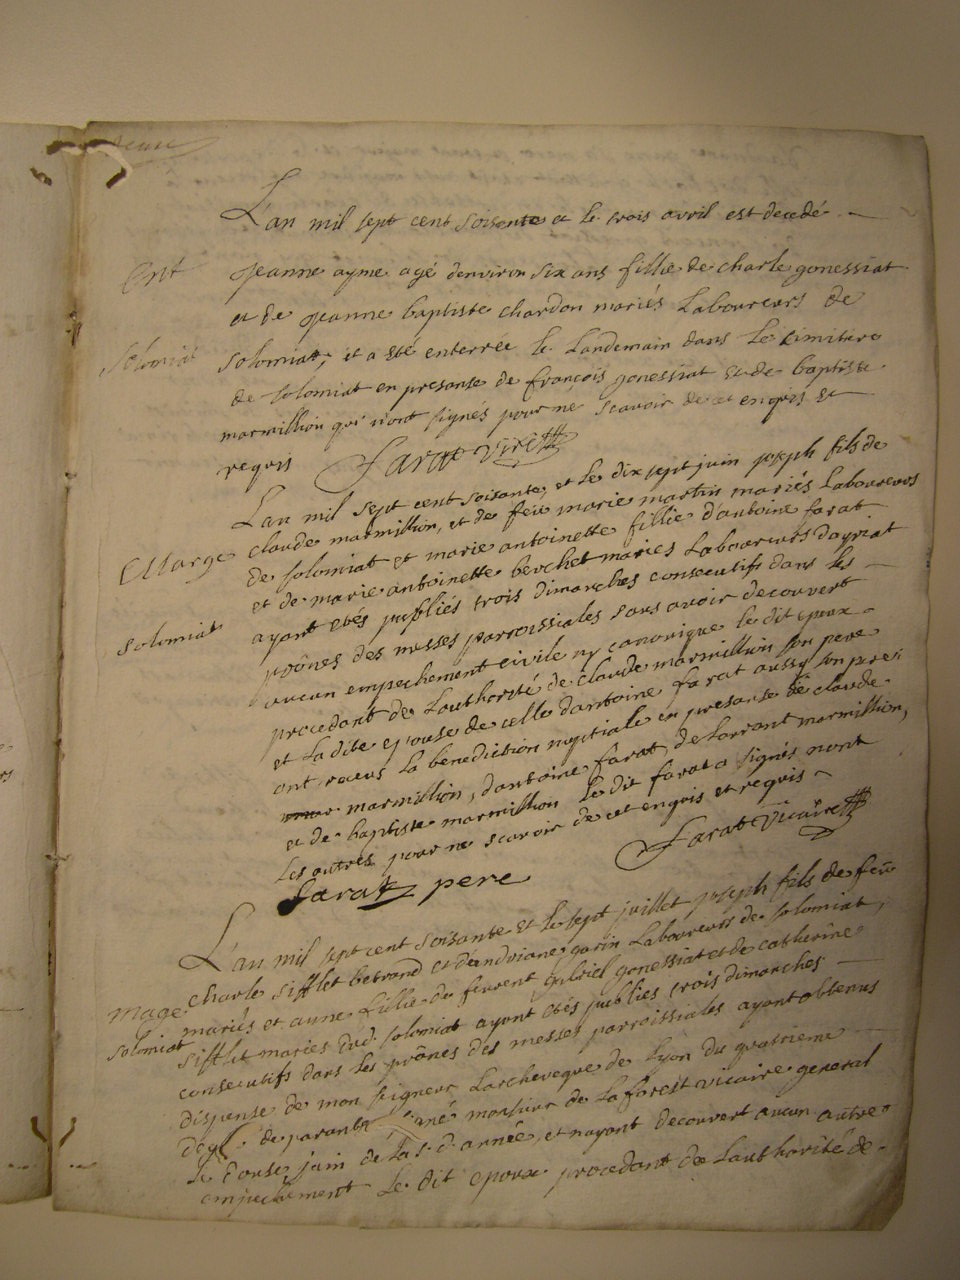 L'an mil sept cent soisente et le trois avril est decedé
Ent
jeanne ayme agé denviron six ans fillie de charle gonessiat
et de jeanne baptiste chardon mariés Laboureurs de
solomiat
solomiat, et a été enterrée le Landemain dans le cimitiere
de solomiat en presanse de françois gonessiat et de baptiste
marmillion qui n'ont signés pour ne scavoir de ce enquis et
requis farat vire
L'an mil sept cent soisante, et le dix sept juin joseph fils de
claude marmillion, et de feüe marie martin mariés Laboureurs
Marge
de solomiat et marie antoinette fillie d'antoine farat
et de marie antoinette bevchet mariés Laboureurs dayriat
ayant etés publiés trois dimanches consecutifs dans les
solomiat
prônes des messes parroissiales sans avoir decouvert
aucun empechement civile ny canonique le dit epoux
procedant de Lauthorité de claude marmillion son pere
et La dite epouse de celle dantoine farat aussy son pere
ont receus La benediction nuptiale en presanse de claude
marmillion, dantoine farat, de Laurant marmillion,
et de baptiste marmillion le dit farat a signés nont
Les autres pour ne scavoir de cet enquis et requis
farat vicaire
farat pere
L'an mil sept cent soisante et le sept juillet joseph fils de feu
charle sifflet betrand et dandriane garin Laboureurs de solomiat,
mage
mariés et anne fillie de feu gabriel gonessiat et de catherine
solomiat
sifflet mariés dud. solomiat ayant etés publies trois dimanches
consecutifs dans les prônes des messes parroissiales ayant obtenus
dispense de mon seigneur Larcheveque de Lyon du quatrieme
de parante signé monsieur de La forest vicaire general
le douse juin de La s. d. année, et nayant decouvert aucun autre
empechement Le dit epoux procedant de Lauthorité de